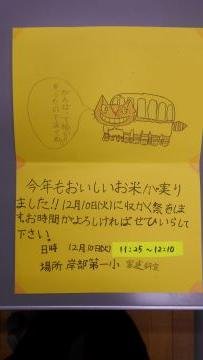 今年もおいしいお米が実り
ました!! 12月10日(火)に収かく祭をします
お時間がよろしければぜひいらして
下さい!
日時 12月10日(火) 11:25～12:10
場所 岸部第一小 家庭科室